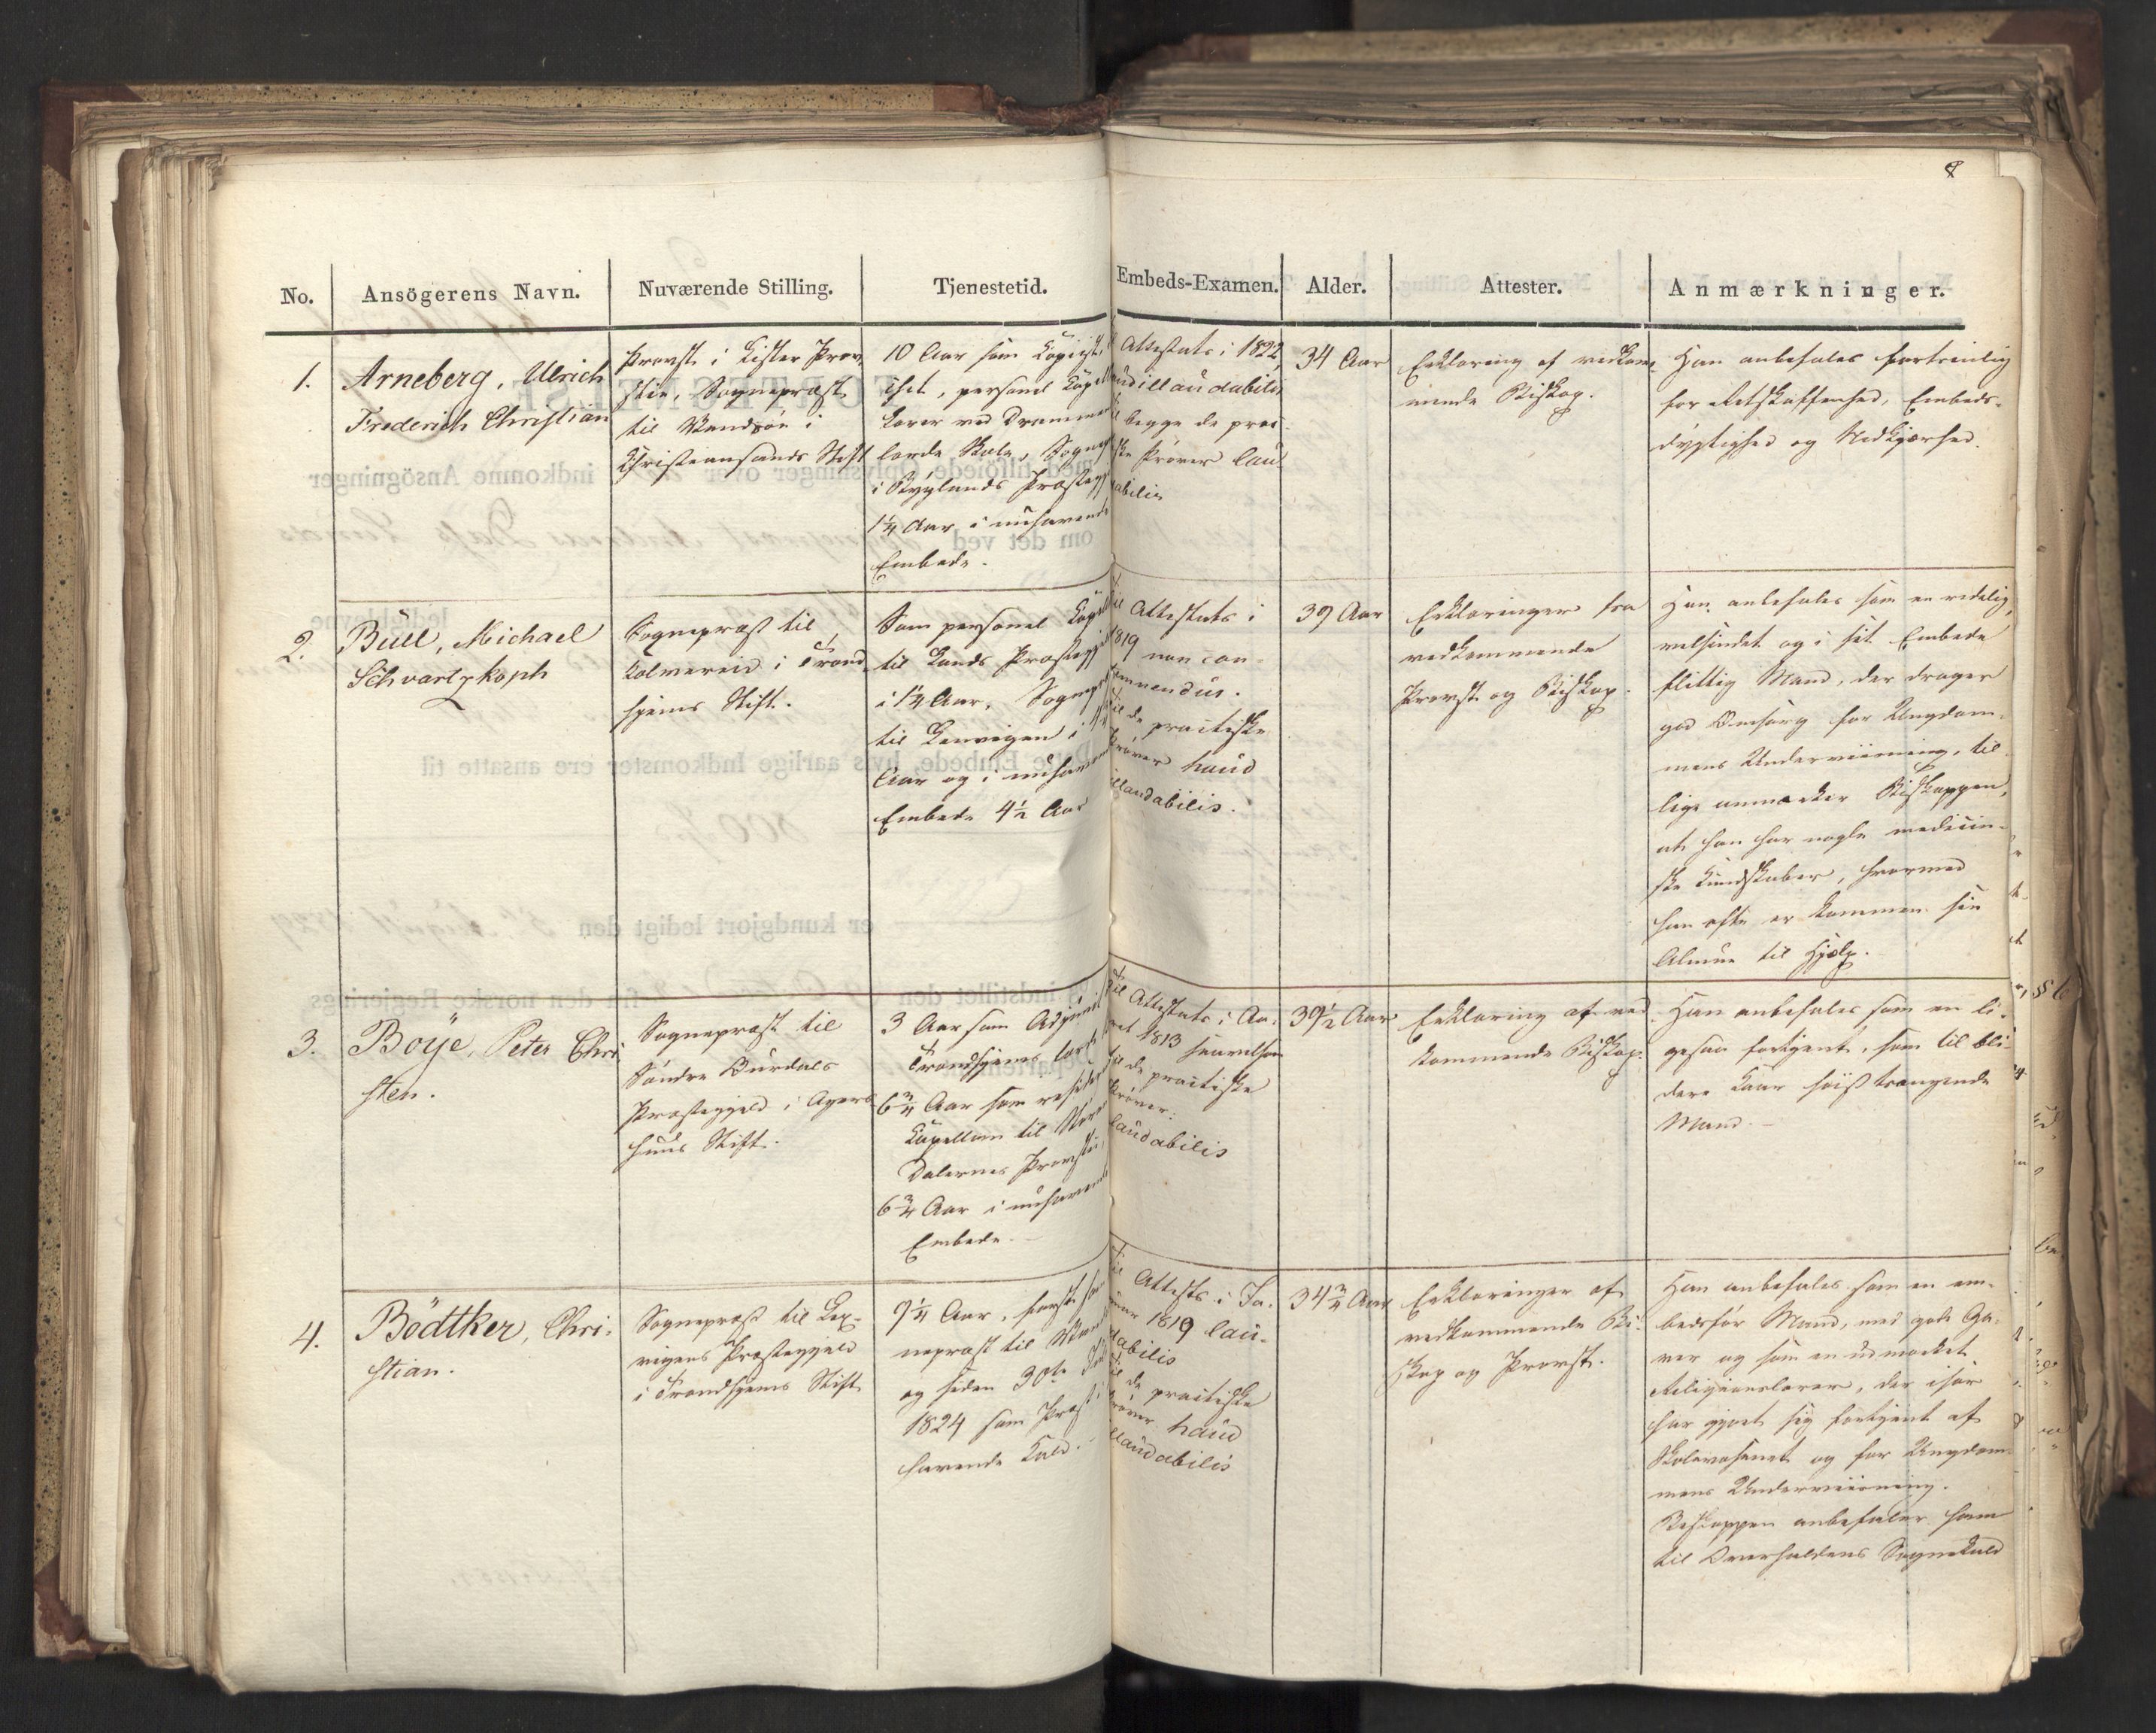 8
No.
Ansögerens Navn.
Nuværende Stilling.
Tjenestetid.
Embeds-Examen.
Alder.
Attester.
Anmærkninger.
1.
Arneberg, Ulrich
Frederich Christian
Provst i Lister Prov-
stie, Sognepræst
til Vandsøe i
Christiansands Stift
10 Aar som Copiist,
personel Capel
Lærer ved Drammens
lærde Skole, Sognep
i Præstegj
1 1/4 Aar i nuhavende
Embede.
Attestats i 1822,
haud illaudabilis
begge de prac
Prøver lau
dabilis
34 Aar
Erklæring af vedkom-
mende Biskop.
Han anbefales fortrinlig
for Retskaffenhed, Embeds-
dygtighed og Nidkjærhed.
2.
Bull, Michael
Schvartzkoph
Sognepræst til
Kolvereid i Trond-
hjems Stift.
Som personel Capel
til Lands Præstegj
i 1 1/4 Aar, Sognepr
til Lenvigen i
Aar og i nuhavende
Embede 4 1/2 Aar
til Attestats i
1819 non con-
temnendus.
til de practiske
Prøver haud
illaudabilis.
39 Aar
Erklæringer fra
vedkommende
Provst og Biskop.
Han anbefales som en redelig,
velsindet og i sit Embede
flittig Mand, der drager
god Omsorg for Ungdom-
mens Underviisning, til
lige anmærker Biskoppen,
at han har nogle medicin-
ske Kundskaber, hvormed
han ofte er kommen sin
Almue til Hjælp.
3.
Boÿe, Peter Chri
sten.
Sognepræst til
Søndre Aurdals
Præstegjeld i Agers-
huus Stift.
3 Aar som Adjunct
Trondhjems lærd
6 3/4 Aar som resider
Capellan til
Dalernes Provstie,
6 3/4 Aar i nuhavende
Embede.
til Attestats i Aa-
ret 1813
til de practiske
Prøver:
laudabilis
39 1/2 Aar
Erklæring af ved-
kommende Biskop.
Han anbefales som en li-
gesaa fortjent, som til bli-
dere Kaar høist trængende
Mand.
4.
Bödtker, Chri-
stian.
Sognepræst til Lex-
vigens Præstegjeld
i Trondhjems Stift
9 1/4 Aar, først som
nepræst til
og siden 30te
1824 som Præst i
havende Kald.
til Attests i Ja-
nuar 1819 lau-
dabilis
til de practiske
Prøver haud
illaudabilis
34 3/4 Aar
Erklæringer af
vedkommende Bi-
skop og Provst.
Han anbefales som en em-
bedsfør Mand, med gode Ga-
ver og som en udmærket
Religionslærer, der især
har gjort sig fortjent af
Skolevæsenet og for Ungdom-
mens Underviisning.
Biskoppen anbefaler ham
til Overhaldens Sognekald